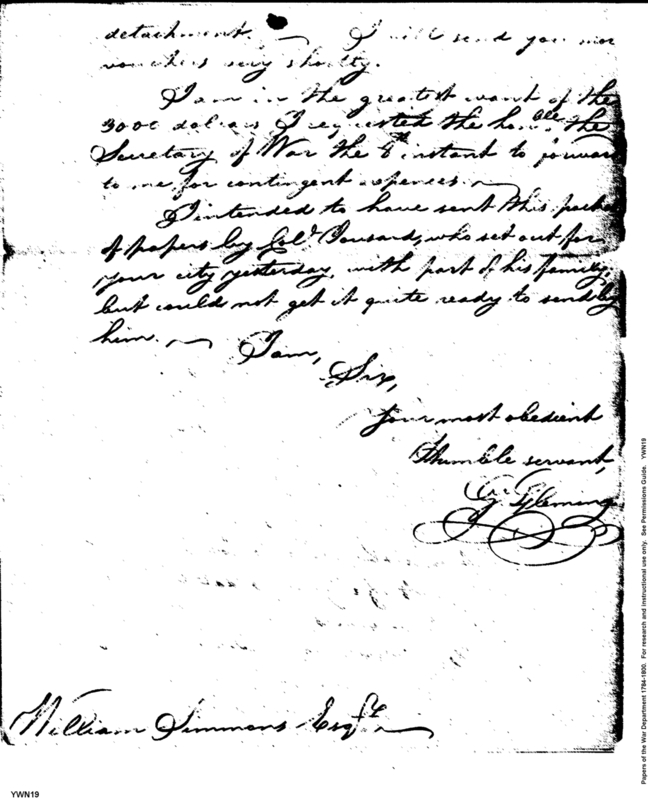 detachment. — I will send you more
vouchers very shortly.
I am in the greatest want of the
3000 dollars I requested the honble. the
Secretary of War the 8th instant to forward
to me for contingent expences. —
I intended to have sent this packet
of papers by Colo. Tousard, who set out for
your city yesterday, with part of his family,
but could not get it quite ready to send by
him. — I am,
Sir,
Your most obedient
Humble servant,
Fleming
William Simmons Esqre.
YWN19
Papers of the War Department 1784-1800. For research and instructional use only. See Permissions Guide. YWN19